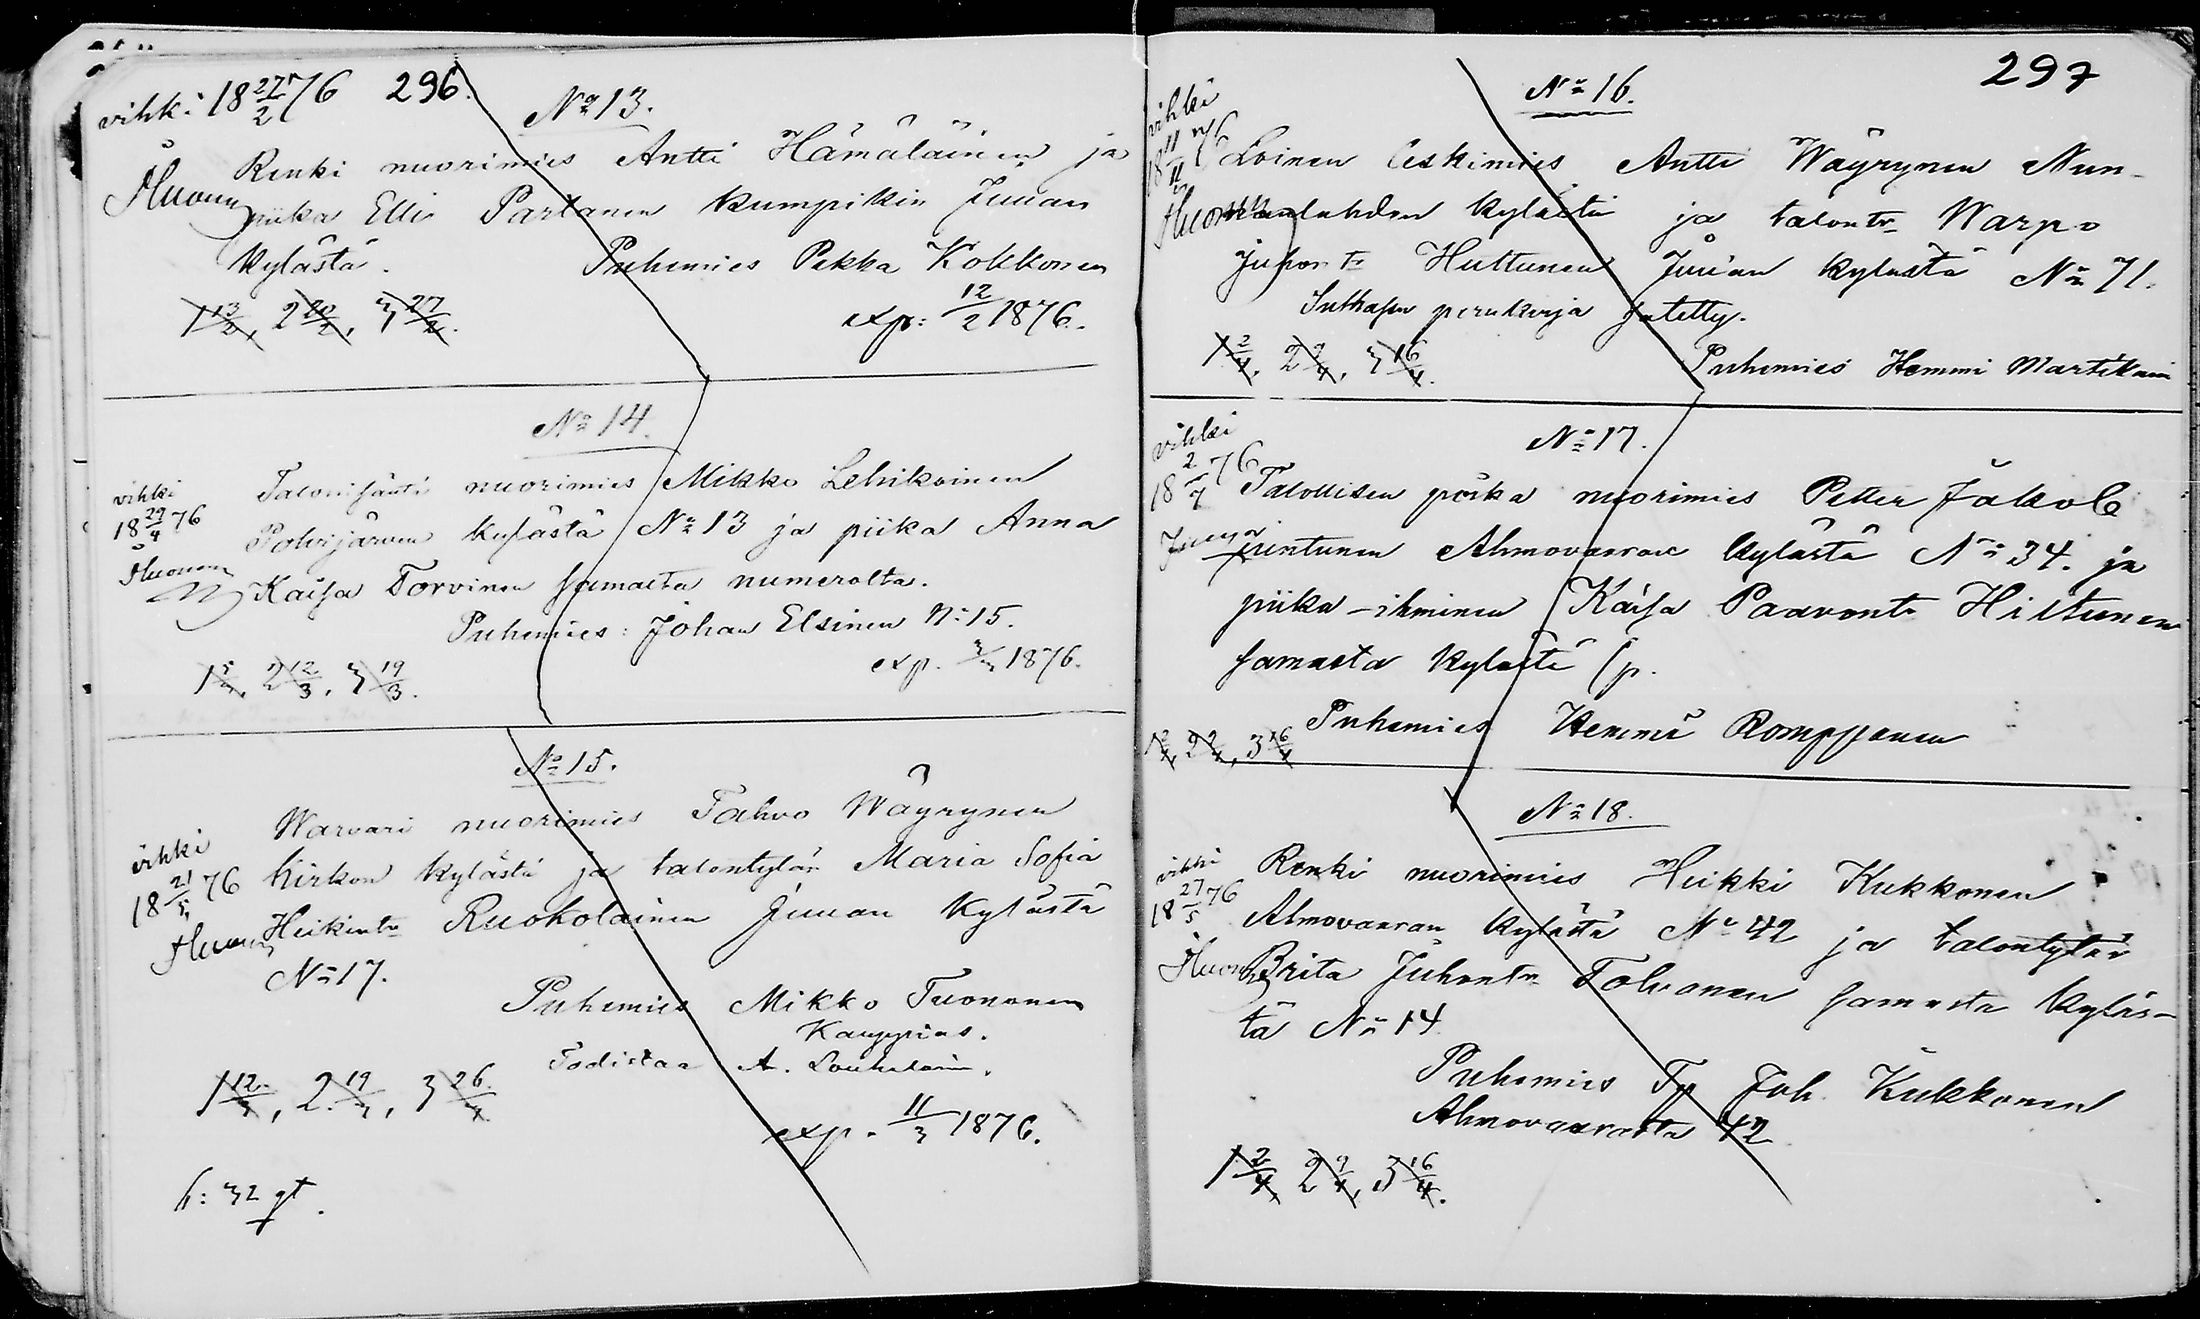 296.
vihki 18 27/2 76
No 13.
Renki nuorimies Antti Hämäläinen ja
piika Elli Partanen kumpikin Juuan
kylästä.
Puhemies Pekka Kokkonen
1 13/2, 2 20/2, 3 27/2.
exp: 12/2 1876.
No 14.
vihki
18 29/4 76
Talonisäntä nuorimies Mikko Lehikoinen
Polvijärven kylästä No 13 ja piika Anna
Kaisa Torvinen samalta numerolta.
Puhemies: Johan Elsinen No 15.
exp. 3/3 1876.
1 5/3, 2 12/3, 3 19/3.
No 15.
vihki
18 21/5 76
Warvari nuorimies Tahvo Wäyrynen
Kirkon kylästä ja talontytär Maria Sofia
Heikintr Ruokolainen Juuan kylästä
No 17.
Puhemies Mikko Tuononen
Kauppias.
Todistaa A.
1 12/3, 2 19/3, 3 26/3
exp. 11/3 1876.
h: 32 gt.
297
No 16.
vihki
18 11/11 76
Loinen leskimies Antti Wäyrynen Nun-
nanlahden kylästä ja talontr Warpo
Juhontr Huttunen Juuan kylästä No 71.
perukirja jätetty.
1 2/4, 2 9/4, 3 16/4.
Puhemies Hemmi Martikain
No 17.
vihki
18 2/7 76
Talollisen poika nuorimies Petter Jakob
Juntunen Ahmovaaran kylästä No 34. ja
piika-ihminen Kaisa Paavontr Hiltunen
samasta kylästä sp.
Puhemies Hemmi Romppanen
1 2/4, 2 9/4, 3 16/4
No 18.
vihki
18 27/5 76
Renki nuorimies Heikki Kukkonen
Ahmovaaran kylästä No 42 ja talontytär
Brita Juhontr Tolvanen samasta kyläs-
tä No 14
Puhemies Joh. Kukkonen
Ahmovaarasta 42
1 2/4, 2 9/4, 3 16/4.